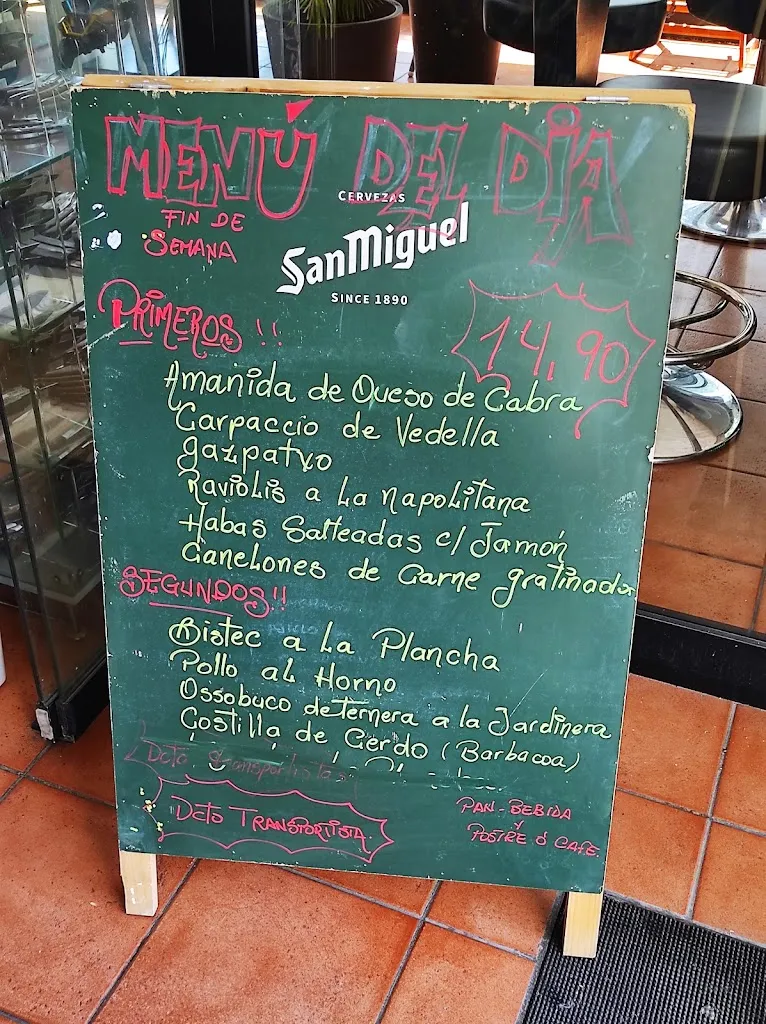 MENÚ DEL DÍA
FIN DE
SEMANA
CERVEZAS
SanMiguel
SINCE 1890
PRIMEROS !!
14,90
Amanida de Queso de Cabra
Carpaccio de Vedella
gazpatxo
Raviolis a La napolitana
Habas Salteadas c/ Jamón
Canelones de Carne gratinados
SEGUNDOS!!
Bistec a La Plancha
Pollo al Horno
Ossobuco de ternera a la Jardinera
Costilla de Cerdo (Barbacoa)
Dcto transportistas
Dcto TRANSPORTISTA.
PAN - BEBIDA
Y
POSTRE ó CAFE.